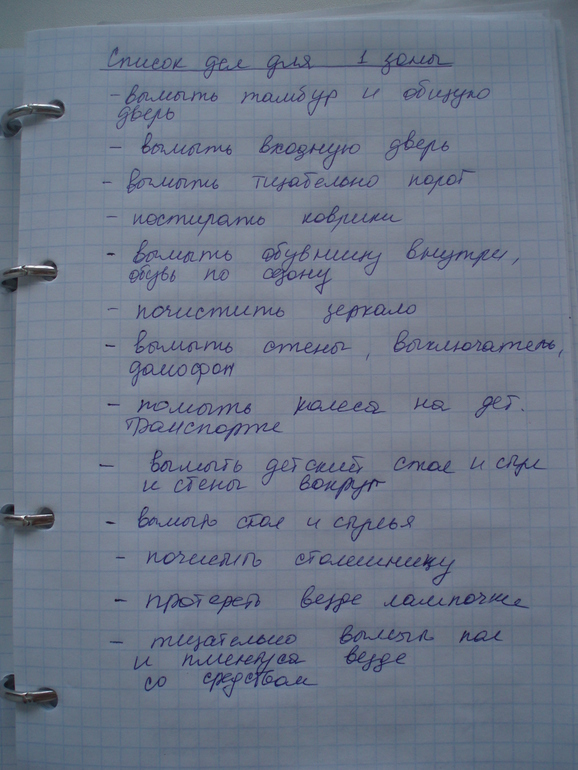 Список дел для 1 зоны
- вымыть тамбур и общую
дверь
- вымыть входную дверь
- вымыть тщательно порог
- постирать коврики
- вымыть обувницу внутри,
обувь по сезону
- почистить зеркало
- вымыть стены, выключатель,
домофон
- помыть колеса на дет.
транспорте
- вымыть детский стол и стул
и стены вокруг
- вымыть стол и стулья
- почистить столешницу
- протереть везде лампочки
- тщательно вымыть пол
и плинтуса везде
со средством